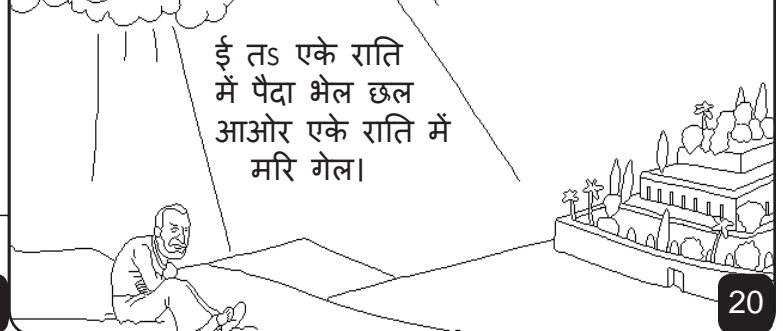 ई तs एके राति
में पैदा भेल छल
आओर एके राति में
मरि गेल।
20